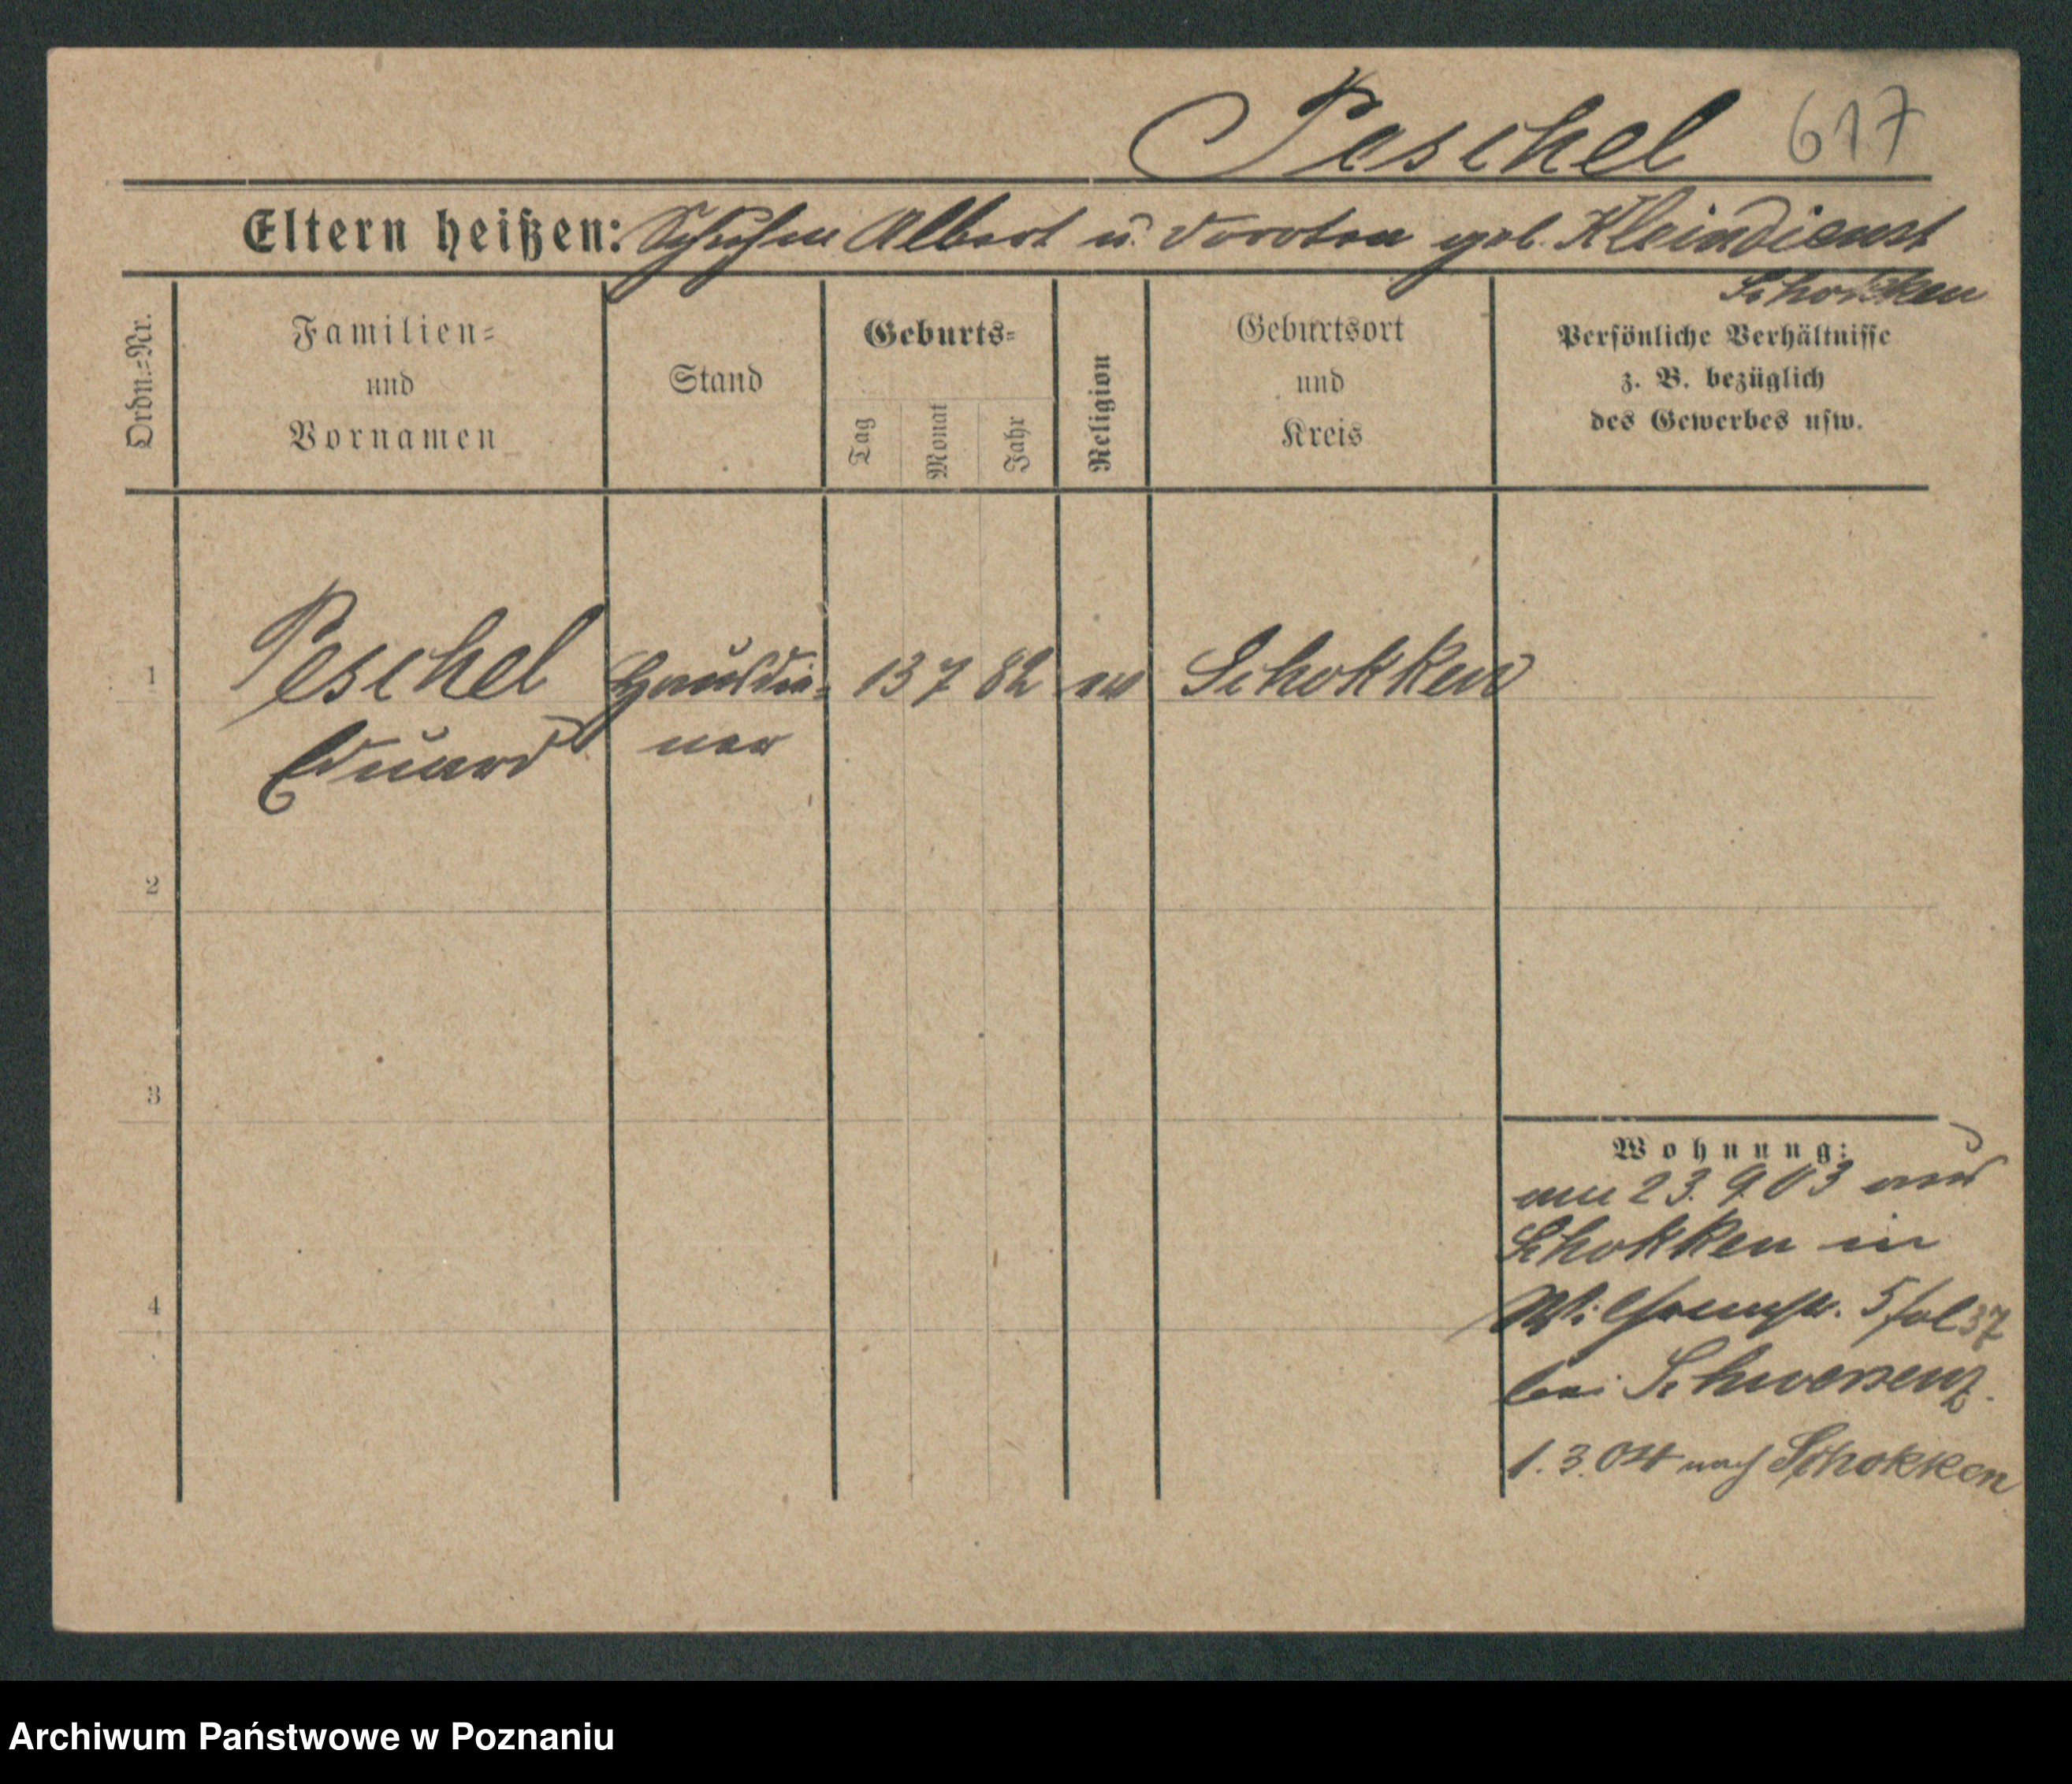 Peschel 617
Eltern heißen: Albert u. Dorothea geb. Kleindienst
Schokken
Ordn.=Nr.
Familien=
und
Vornamen
Stand
Geburts=
Tag
Monat
Jahr
Religion
Geburtsort
und
Kreis
Persönliche Verhältnisse
z. B. bezüglich
des Gewerbes usw.
1 Peschel Hausdie= 13 7 82 Schokken
Eduard ner
2
3
4
Wohnung:
am 23. 9. 03 aus
Schokken in
5 fol 37
bei Schwersenz.
1. 3. 04 nach Schokken
Archiwum Państwowe w Poznaniu